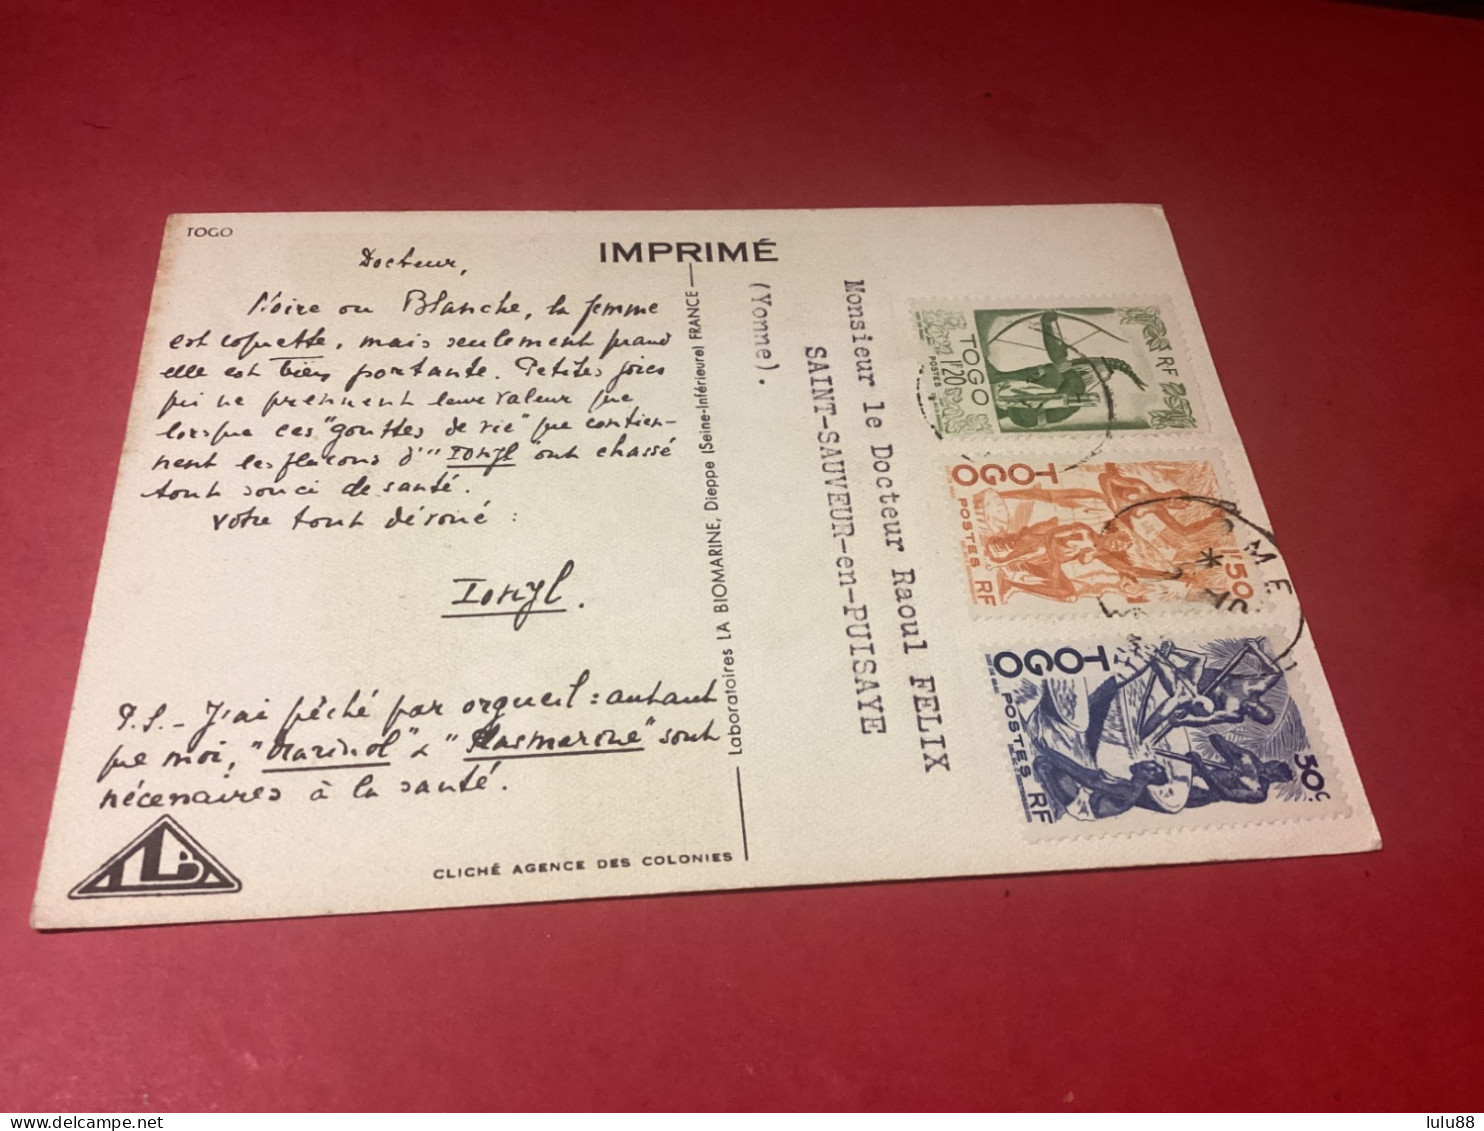 TOGO
IMPRIMÉ
Docteur,
Noire ou Blanche, la femme
est coquette, mais seulement quand
elle est bien portante. Petites joies
qui ne prennent leur valeur que
lorsque ces "gouttes de vie" que contien-
nent les flacons d'"Ionyl" ont chassé
tout souci de santé.
Votre tout dévoué :
Ionyl.
P.S.- J'ai péché par orgueil : autant
que moi, "Marinol" & "Plasmarine" sont
nécessaires à la santé.
LB
CLICHÉ AGENCE DES COLONIES
Laboratoires LA BIOMARINE, Dieppe (Seine-Inférieure) FRANCE
Monsieur le Docteur Raoul FELIX
SAINT-SAUVEUR-en-PUISAYE
(Yonne).
RF
TOGO
POSTES
1F20
TOGO
POSTES RF
1F50
TOGO
POSTES RF
50c
LOME
lulu88